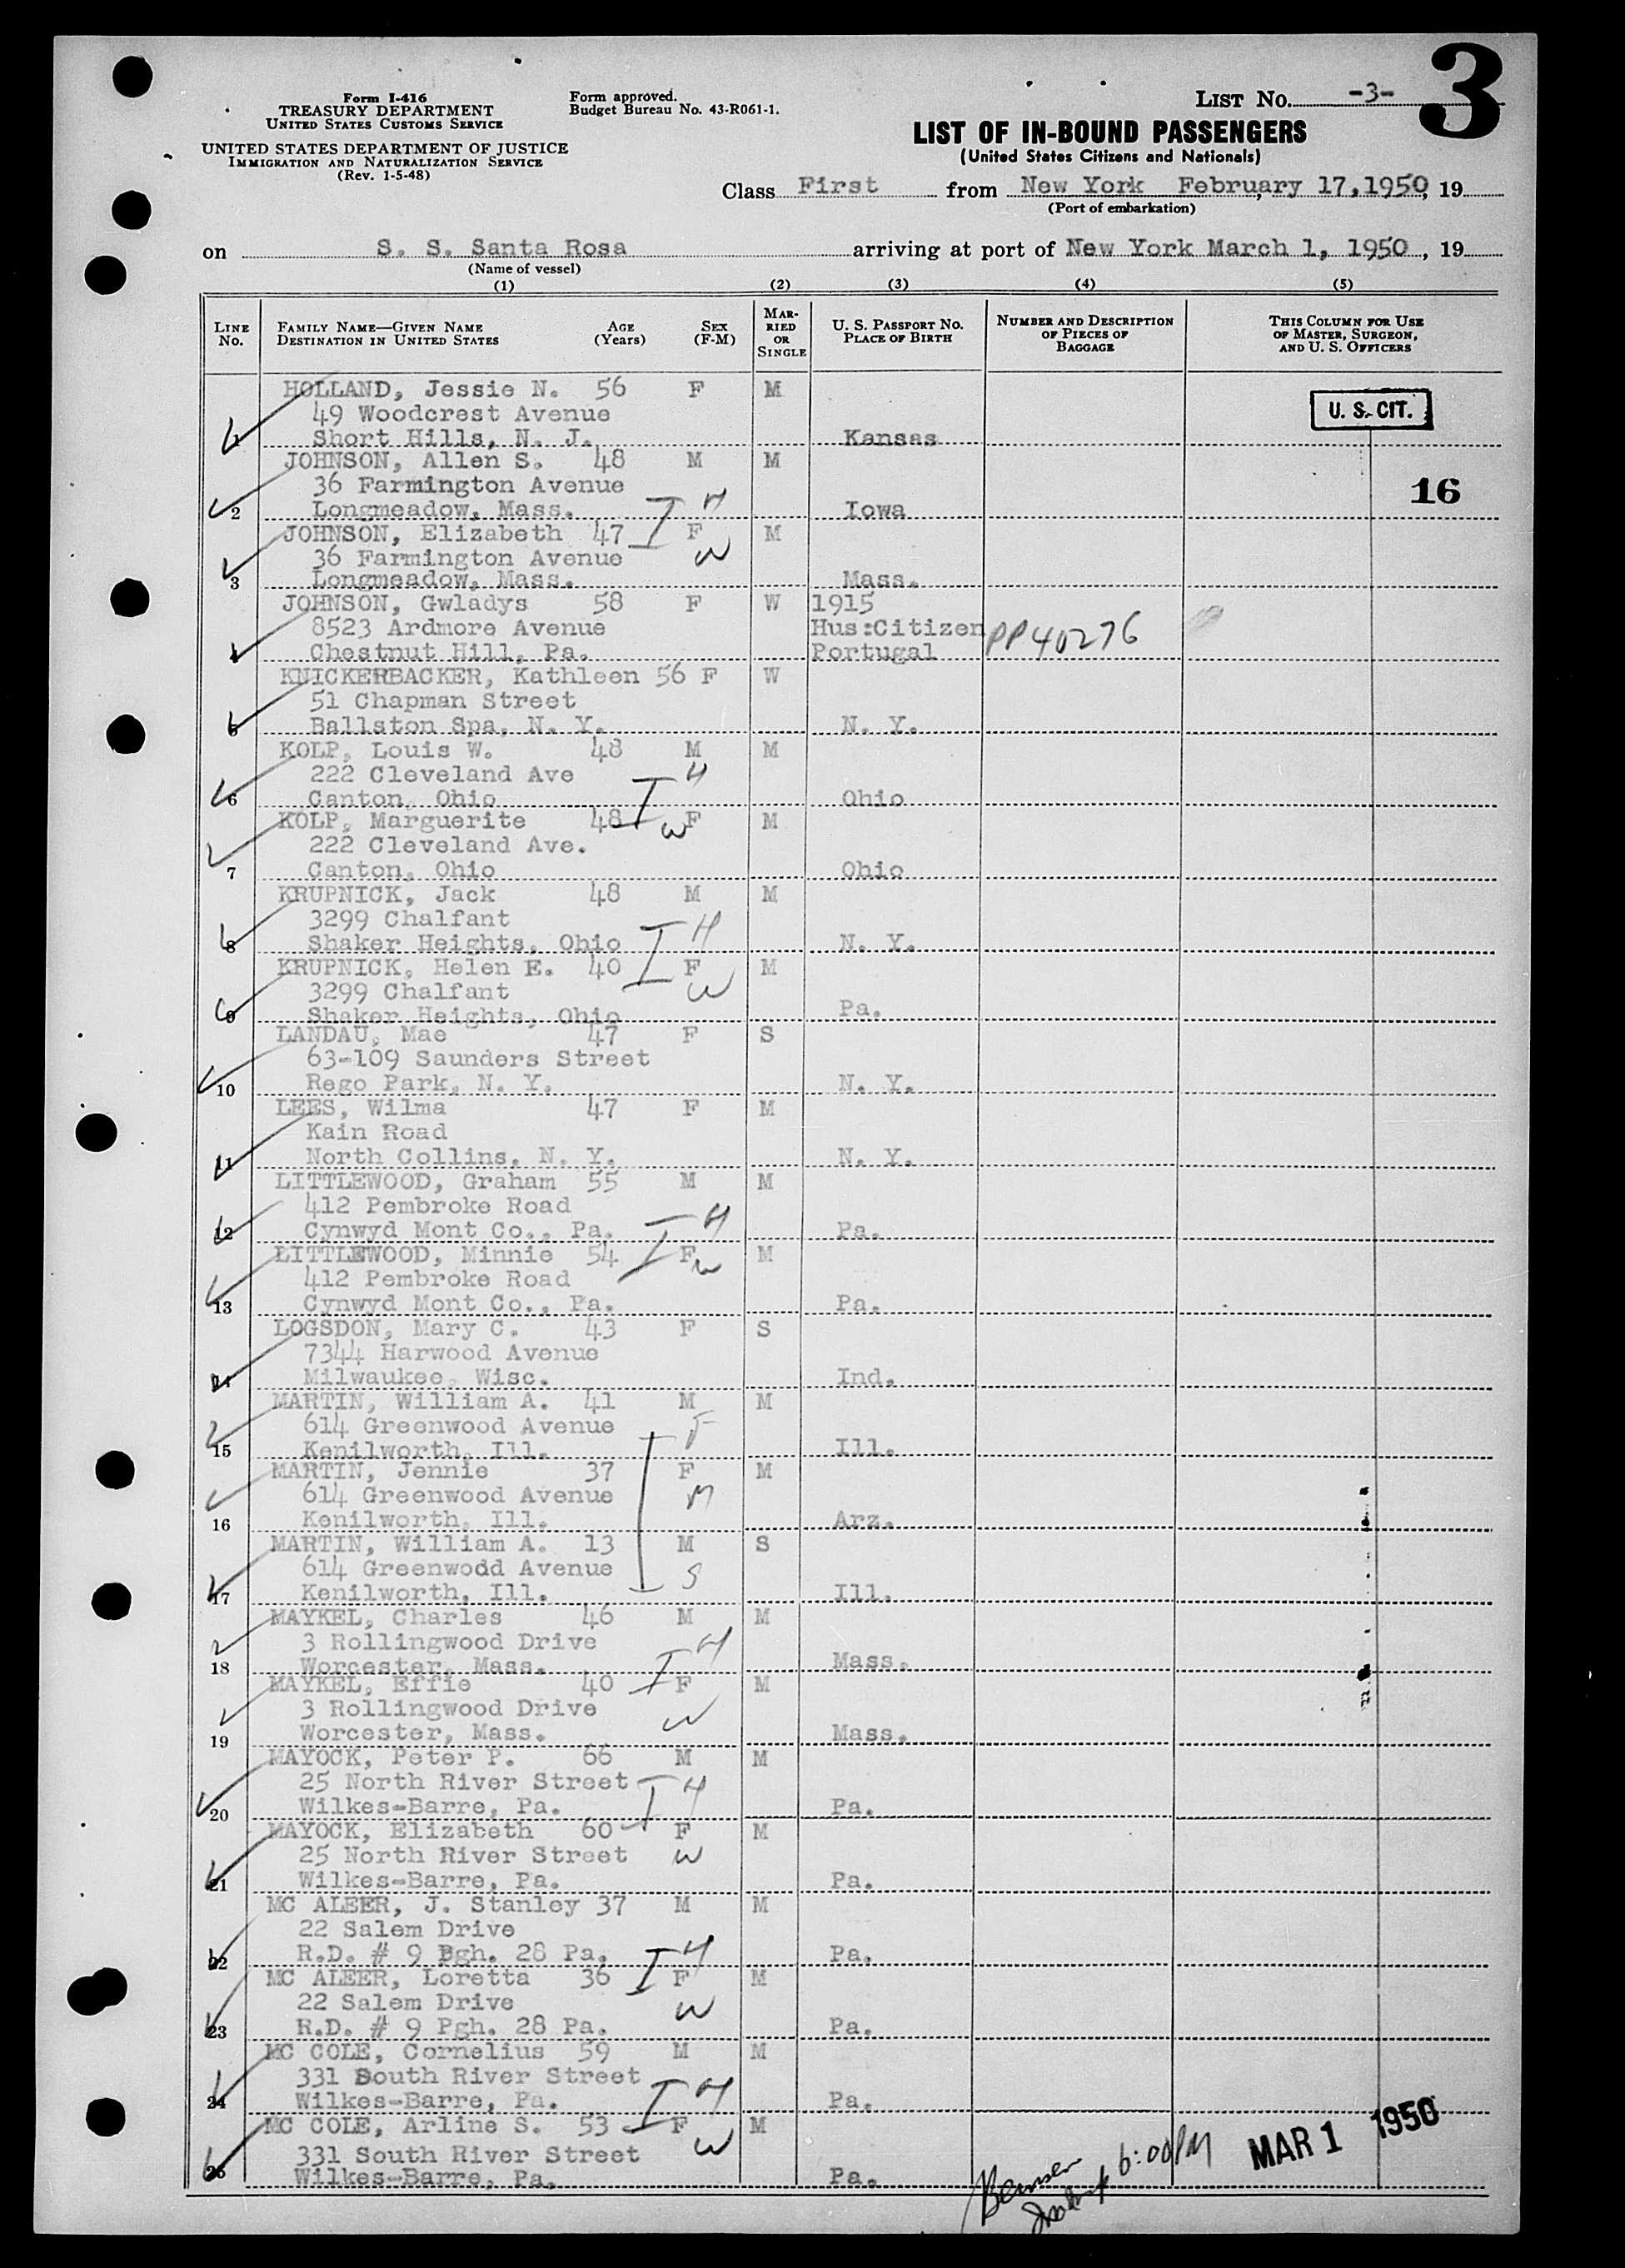 3
Form I-416
TREASURY DEPARTMENT
UNITED STATES CUSTOMS SERVICE
UNITED STATES DEPARTMENT OF JUSTICE
IMMIGRATION AND NATURALIZATION SERVICE
(Rev. 1-5-48)
Form approved.
Budget Bureau No. 43-R061-1.
LIST No. -3-
LIST OF IN-BOUND PASSENGERS
(United States Citizens and Nationals)
Class First from New York February 17,1950, 19
(Port of embarkation)
on S. S. Santa Rosa arriving at port of New York March 1, 1950, 19
(Name of vessel)
(1) (2) (3) (4) (5)
LINE No. FAMILY NAME—GIVEN NAME DESTINATION IN UNITED STATES AGE (Years) SEX (F-M) MARRIED OR SINGLE U. S. PASSPORT NO. PLACE OF BIRTH NUMBER AND DESCRIPTION OF PIECES OF BAGGAGE THIS COLUMN FOR USE OF MASTER, SURGEON, AND U. S. OFFICERS
HOLLAND, Jessie N. 56 F M
49 Woodcrest Avenue U. S. CIT.
1 Short Hills, N. J. Kansas
JOHNSON, Allen S. 48 M M
36 Farmington Avenue H 16
2 Longmeadow, Mass. Iowa
JOHNSON, Elizabeth 47 F M
36 Farmington Avenue W
3 Longmeadow, Mass. Mass.
JOHNSON, Gwladys 58 F W 1915
8523 Ardmore Avenue Hus:Citizen PP40276
4 Chestnut Hill, Pa. Portugal
KNICKERBACKER, Kathleen 56 F W
51 Chapman Street
5 Ballston Spa, N. Y. N. Y.
KOLP, Louis W. 48 M M
222 Cleveland Ave H
6 Canton, Ohio Ohio
KOLP, Marguerite 48 W F M
222 Cleveland Ave.
7 Canton, Ohio Ohio
KRUPNICK, Jack 48 M M
3299 Chalfant H
8 Shaker Heights, Ohio N. Y.
KRUPNICK, Helen E. 40 F M
3299 Chalfant W
9 Shaker Heights, Ohio Pa.
LANDAU, Mae 47 F S
63-109 Saunders Street
10 Rego Park, N. Y. N. Y.
LEES, Wilma 47 F M
Kain Road
11 North Collins, N. Y. N. Y.
LITTLEWOOD, Graham 55 M M
412 Pembroke Road H
12 Cynwyd Mont Co., Pa. Pa.
LITTLEWOOD, Minnie 54 F W M
412 Pembroke Road
13 Cynwyd Mont Co., Pa. Pa.
LOGSDON, Mary C. 43 F S
7344 Harwood Avenue
14 Milwaukee, Wisc. Ind.
MARTIN, William A. 41 M M
614 Greenwood Avenue F
15 Kenilworth, Ill. Ill.
MARTIN, Jennie 37 F M
614 Greenwood Avenue M
16 Kenilworth, Ill. Arz.
MARTIN, William A. 13 M S
614 Greenwodd Avenue S
17 Kenilworth, Ill. Ill.
MAYKEL, Charles 46 M M
3 Rollingwood Drive H
18 Worcester, Mass. Mass.
MAYKEL, Effie 40 F M
3 Rollingwood Drive W
19 Worcester, Mass. Mass.
MAYOCK, Peter P. 66 M M
25 North River Street H
20 Wilkes-Barre, Pa. Pa.
MAYOCK, Elizabeth 60 F M
25 North River Street W
21 Wilkes-Barre, Pa. Pa.
MC ALEER, J. Stanley 37 M M
22 Salem Drive
22 R.D. # 9 Pgh. 28 Pa. H Pa.
MC ALEER, Loretta 36 F M
22 Salem Drive W
23 R.D. # 9 Pgh. 28 Pa. Pa.
MC COLE, Cornelius 59 M M
331 South River Street
24 Wilkes-Barre, Pa. H Pa.
MC COLE, Arline S. 53 F M
331 South River Street W 6:00PM MAR 1 1950
25 Wilkes-Barre, Pa. Pa.